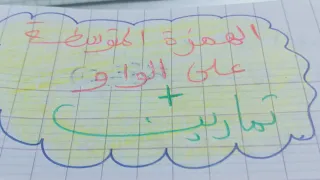 الهمزة المتوسطة
على الواو
+
تمارين